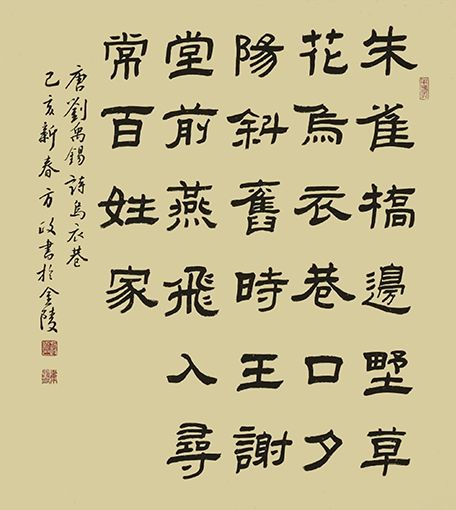 朱雀橋邊野草
花烏衣巷口夕
陽斜舊時王謝
堂前燕飛入尋
常百姓家
唐劉禹錫詩烏衣巷
己亥新春方政書於金陵